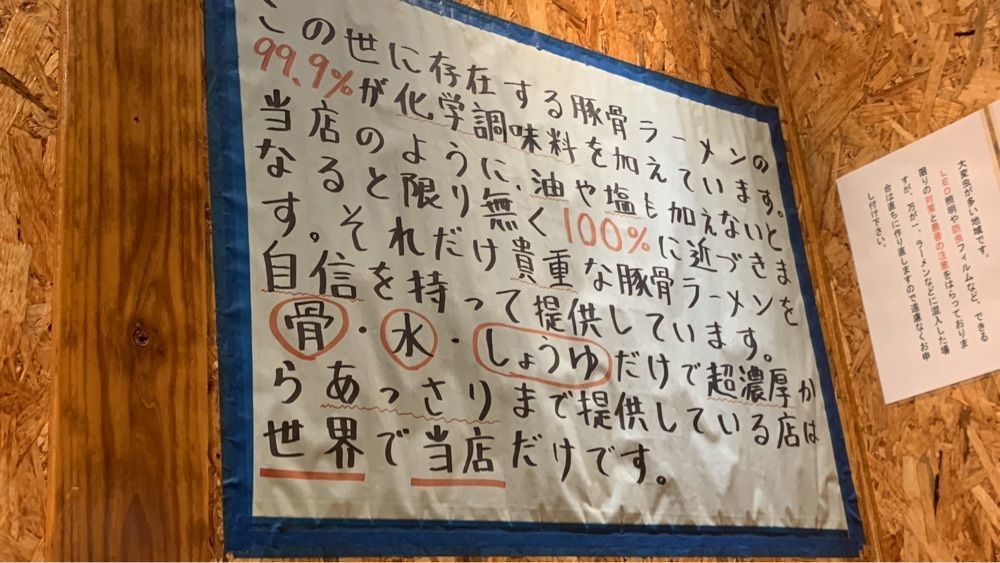 この世に存在する豚骨ラーメンの
99.9%が化学調味料を加えています。
当店のように、油や塩も加えないと
なるとそれ限り無く100%に近づきま
す。それだけ貴重な豚骨ラーメンを
自信を持って提供しています。
骨・水・しょうゆだけで超濃厚か
らあっさりまで提供している店は
世界で当店だけです。
大変虫が多い地域です。
LED照明や防虫フィルムなど、できる
限りの対策と最善の注意をはらっておりま
すが、万が一、ラーメンなどに混入した場
合は直ちに作り直しますので遠慮なくお申
し付け下さい。